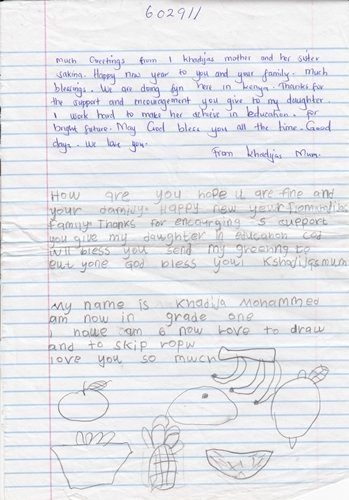 602911
Much Greetings from I khadijas mother and her sister
saking. Happy new year to you and your family. Much
blessings. We are doing fyn here in kenya. Thanks for
the support and encouragement you give to my daughter.
I work hard to make her achieve in education. for
bright future. May God bless you all the time. Good
days. We love you.
From khadijas Mum.
How are you hope u are fine and
your damidy. Happy new year from
Family. Thanks for encurging s support
you give my daughter in education God
will bless you send my greeting to
God bless you! Kshadijasmum
My name is Khadija Mohammed
am now in grade one
I am 6 now Love to draw
and to skip ropw
love you so much